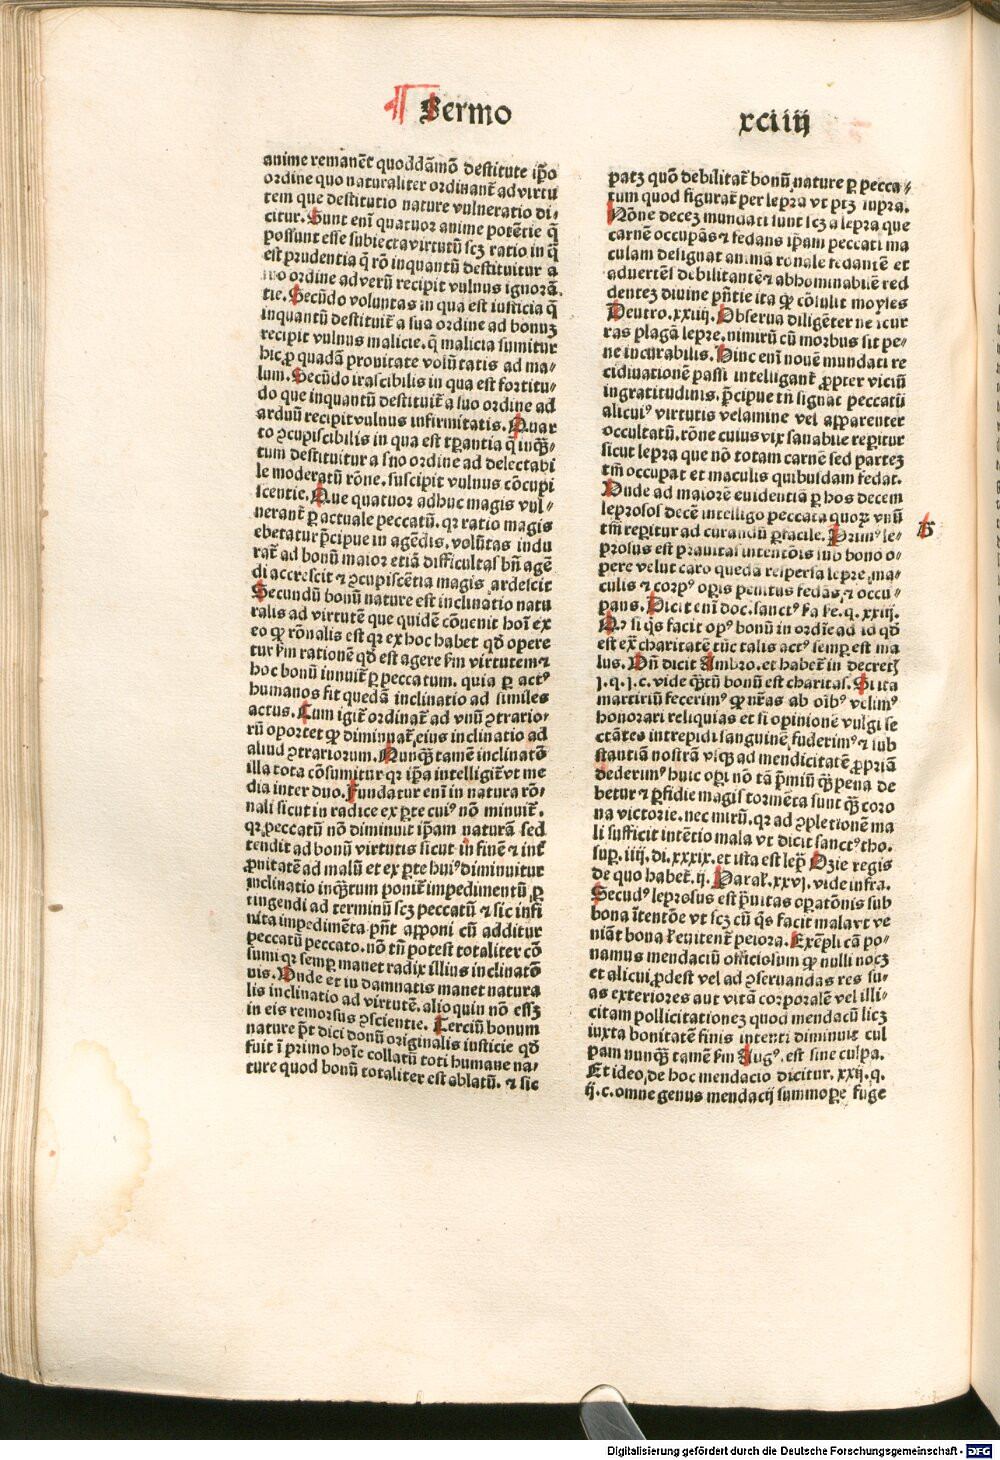 Sermo
xciiij
anime remanēt quoddāmō destitute ip̄o
ordine quo naturaliter ordinant᷑ ad virtu
tem que destitutio nature vulneratio di⸗
citur. Sunt eni͂ quatuor anime potētie q̄
possunt esse subiecta virtutū scꝫ ratio in q̄
est prudentia q̄ rō inquantū destituitur a
suo ordine ad verū recipit vulnus ignorā
tie. Secūdo voluntas in qua est iusticia q̄
inquantū destituit᷑ a sua ordine ad bonuꝫ
recipit vulnus malicie. q̄ malicia sumitur
hic ꝓ quadā pronitate volūtatis ad ma⸗
lum. Secūdo irascibilis in qua est fortitu⸗
do que inquantū destituit᷑ a suo ordine ad
arduū recipit vulnus infirmitatis. Quar
to ꝯcupiscibilis in qua est tꝑantia q̄ inqꝫ̄⸗
tum destituitur a sno ordine ad delectabi
le moderatū rōne. suscipit vulnus cōcupi
scentie. Que quatuor adhuc magis vul⸗
nerant᷑ ꝑ actuale peccatū. qꝛ ratio magis
ebetatur p̄cipue in agēdis. volūtas indu
rat᷑ ad bonū maior etiā difficultas bn̄ agē
di accrescit ⁊ ꝯcupiscētia magis ardescit
Secundū bonū nature est inclinatio natu
ralis ad virtutē que quidē cōuenit hoi͂ ex
eo ꝙ rōnalis est qꝛ ex hoc habet qd̄ opere
tur ẜm rationē qd̄ est agere ẜm virtutem ⁊
hoc bonū innuit᷑ ꝑ peccatum. quia ꝑ actꝰ
humanos fit quedā inclinatio ad similes
actus. Cum igit᷑ ordinat᷑ ad vnū ꝯtrario⸗
rū oportet ꝙ diminuat᷑ eius inclinatio ad
aliud ꝯtrariorum. Nunqꝫ̄ tamē inclinatō
illa tota cōsumitur qꝛ ip̄a intelligit᷑ vt me
dia inter duo. Fundatur eni͂ in natura rō⸗
nali sicut in radice ex ꝑte cuiꝰ nō minuit᷑.
qꝛ peccatū nō diminuit ip̄am naturā sed
tendit ad bonū virtutis sicut in finē ⁊ int᷑
ꝓnitatē ad malū et ex ꝑte huiꝰ diminuitur
inclinatio inqꝫ̄tum ponit᷑ impedimentū ꝑ
tingendi ad terminū scꝫ peccatū ⁊ sic infi
nita impedimēta pn̄t apponi cū additur
peccatū peccato. nō tn̄ potest totaliter cō
sumi qꝛ semꝑ manet radix illius inclinatō
nis. Unde et in damnatis manet natura
lis inclinatio ad virtutē. alioquin nō essꝫ
in eis remorsus ꝯscientie. Tercium bonum
nature pōt dici donū originalis iusticie qd̄
fuit ī primo hoi͂e collatū toti humane na⸗
ture quod bonū totaliter est ablatū. ⁊ sic
patꝫ quō debilitat᷑ bonū nature ꝑ pecca⸗
tum quod figurat᷑ per lepra vt ptꝫ supra.
Nōne deceꝫ mundati sunt scꝫ a lepra que
carnē occupās ⁊ fedans ip̄am peccati ma
culam designat animā ronale fedantē et
aduertēs debilitantē ⁊ abhominabilē red
denteꝫ diuine pn̄tie ita ꝙ cōsulit moyses
Deutro. xxiiij. Obserua diligēter ne incur
ras plagā lepre. nimirū cū morbus sit pe⸗
ne incurabilis. Hinc eni͂ nouē mundati re
cidiuationē passi intelligant᷑ ꝓpter viciū
ingratitudinis. p̄cipue tn̄ signat peccatū
alicuiꝰ virtutis velamine vel apparenter
occultatū. rōne cuius vix sanabile reperitur
sicut lepra que nō totam carnē sed parteꝫ
tm̄ occupat et maculis quibusdam fedat.
Unde ad maiorē euidentiā ꝑ hos decem
leprosos decē intelligo peccata quoꝝ vnū
tm̄ reperitur ad curandū ꝑfacile. Primꝰ le⸗
B
prosus est prauitas intentōis sub bono o⸗
pere velut caro queda respersa lepre ma⸗
culis ⁊ corpꝰ opis penitus fedās ⁊ occu⸗
pans. Dicit eni͂ doc. sanctꝰ
Qꝛ si qs̄ facit opꝰ bonū in ordīe ad id qd̄
est ext᷑ charitatē tūc talis actꝰ semꝑ est ma
lus. Un̄ dicit Ambro. et habet᷑ in decretꝭ
j. q. j. c. vide qꝫ̄tū bonū est charitas. Si ita
martiriū fecerimꝰ ꝙ nr̄as ab oi͂bꝰ velimꝰ
honorari reliquias et si opinionē vulgi se
ctātes intrepidi sanguinē fuderimꝰ ⁊ sub
stantiā nostrā vsqꝫ ad mendicitatē ꝓpriā
dederimꝰ huic opi nō tā p̄miū qꝫ̄ pena de
betur ⁊ ꝑfidie magis tormēta sunt qꝫ̄ coro
na victorie. nec mirū. qꝛ ad ꝯpletionē ma
li sufficit intētio mala vt dicit sanctꝰ tho.
sup̱. iiij. di. xxxix. et ista est lep̄ Ozie regis
de quo habet᷑. ij. Paral. xxvj. vide infra.
Secūdꝰ leprosus est p̄uitas oꝑatōnis sub
bona ītentōe vt scꝫ cū qs̄ facit mala vt ve
niāt bona ł euitent᷑ peiora. Exēpli cā po⸗
namus mendaciū officiosum ꝙ nulli nocꝫ
et alicui ꝓdest vel ad ꝯseruandas res su⸗
as exteriores aut vitā corporalē vel illi⸗
citam pollicitationeꝫ quod mendaciū licꝫ
iuxta bonitatē finis intenti diminuit cul
pam nunqꝫ̄ tamē ẜm Augꝰ. est sine culpa.
Et ideo de hoc mendacio dicitur. xxij. q.
ij. c. omne genus mendacij summoꝑe fuge
Digitalisierung gefördert durch die Deutsche Forschungsgemeinschaft - DFG